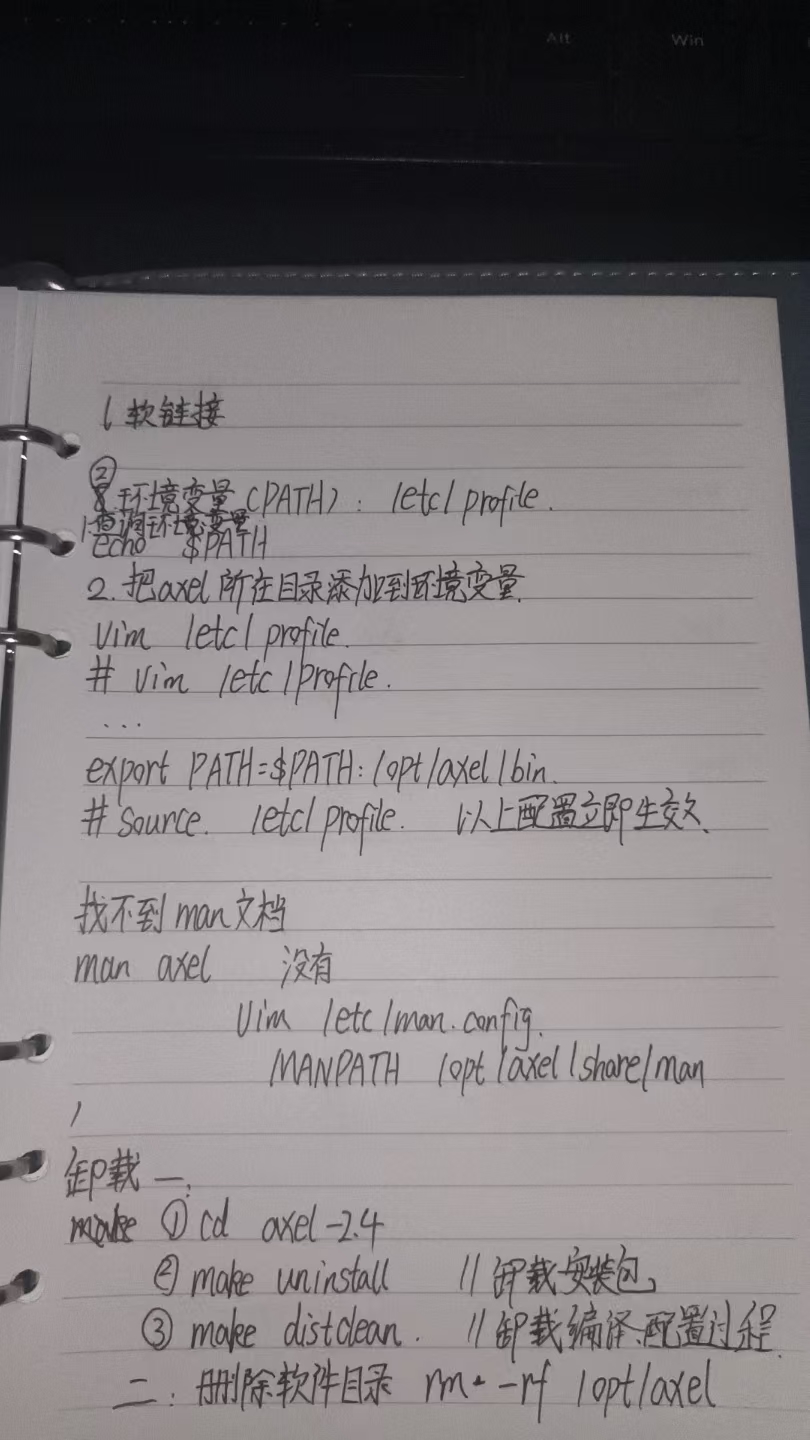 Alt Win
1 软链接
②
环境变量（PATH）: /etc/profile.
1.查询环境变量
echo $PATH
2.把axel所在目录添加到环境变量.
Vim /etc/profile.
# Vim /etc/profile.
...
export PATH=$PATH:/opt/axel/bin.
# Source. /etc/profile. 以上配置立即生效.
找不到man文档
man axel 没有
Vim /etc/man.config.
MANPATH /opt/axel/share/man
卸载 一:
make ① cd axel-2.4
② make uninstall //卸载安装包
③ make distclean. //卸载编译、配置过程.
二: 删除软件目录 rm -rf /opt/axel